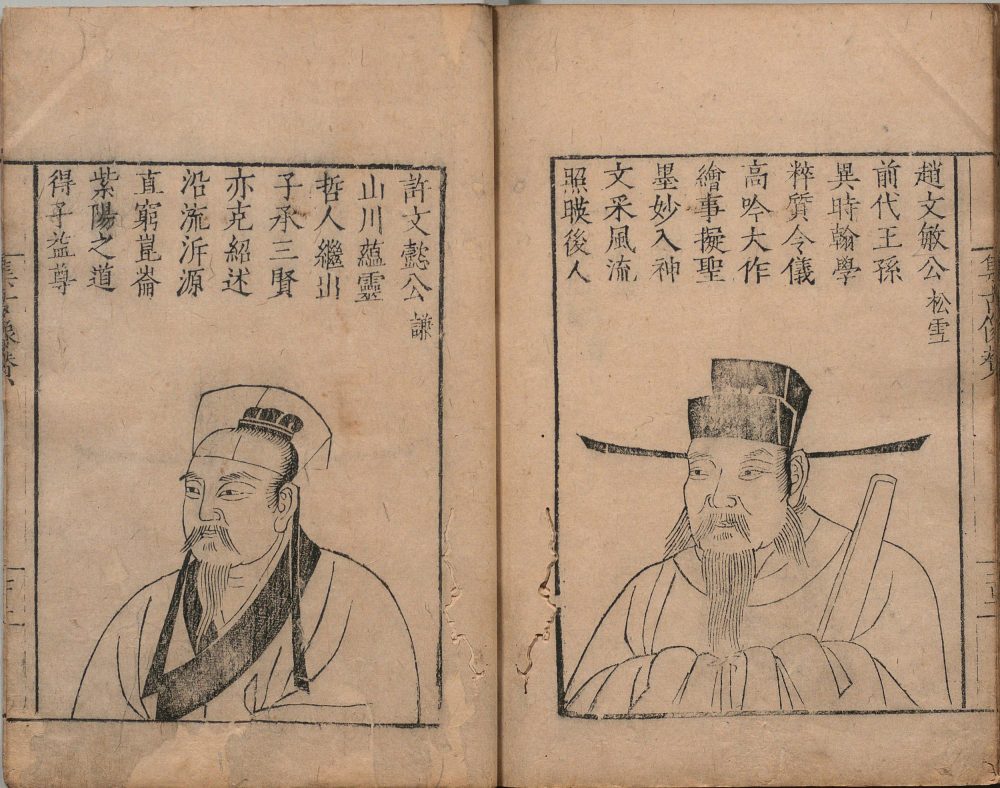 趙文敏公 松雪
前代王孫
異時翰學
粹質令儀
高吟大作
繪事擬聖
墨妙入神
文采風流
照暎後人
許文懿公 謙
山川蘊靈
哲人繼出
子承三賢
亦克紹述
沿流泝源
直窮崑崙
紫陽之道
得子益尊